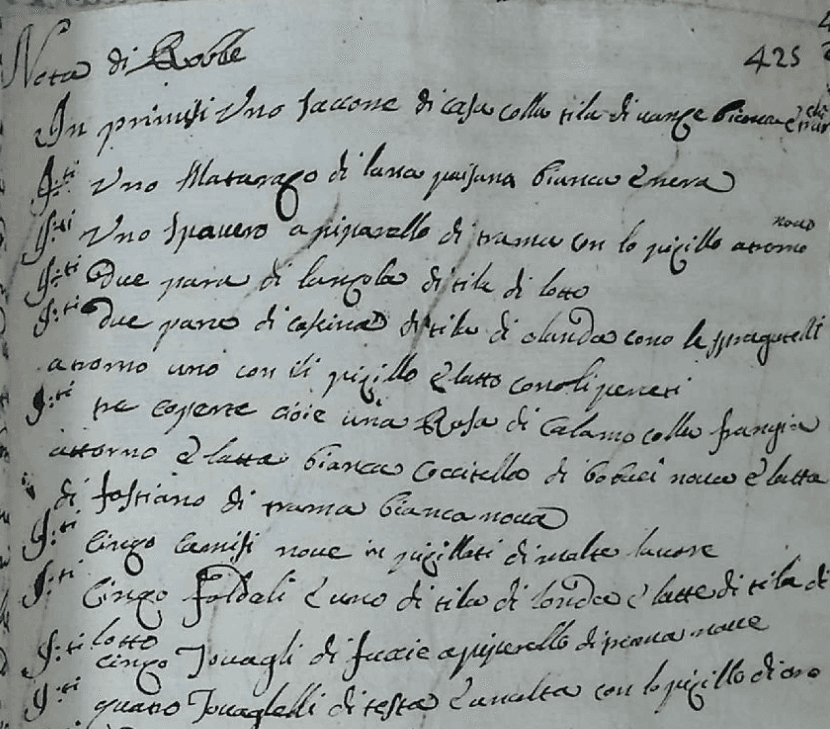 Nota di Robbe
425
In primisi Uno saccone di casa colla tila di
I:ti Uno Matarazo di lana paisana bianca è nera
I:ti Uno spavero a piparello di trama con lo pizillo atorno novo
I:ti due para di lanzola di tila di lotto
I:ti due para di coscina di tila di olanda cono le spragatelli
atorno uno con ili pizillo è latto
I:ti tre coperte cioie una Rosa di Calamo colla frangia
attorno è latta bianca di bobaci nova è latta
di fostiano di trama bianca nova
I:ti Cinqo camisi nove in pizillati di
I:ti Cinqo foldali è uno di tila di londa è latte di tila di
lotto
I:ti cinqo Tovagli di faccie a piparello di nove
I:ti quatro Tovaglelli di testa è con lo pizillo di oro